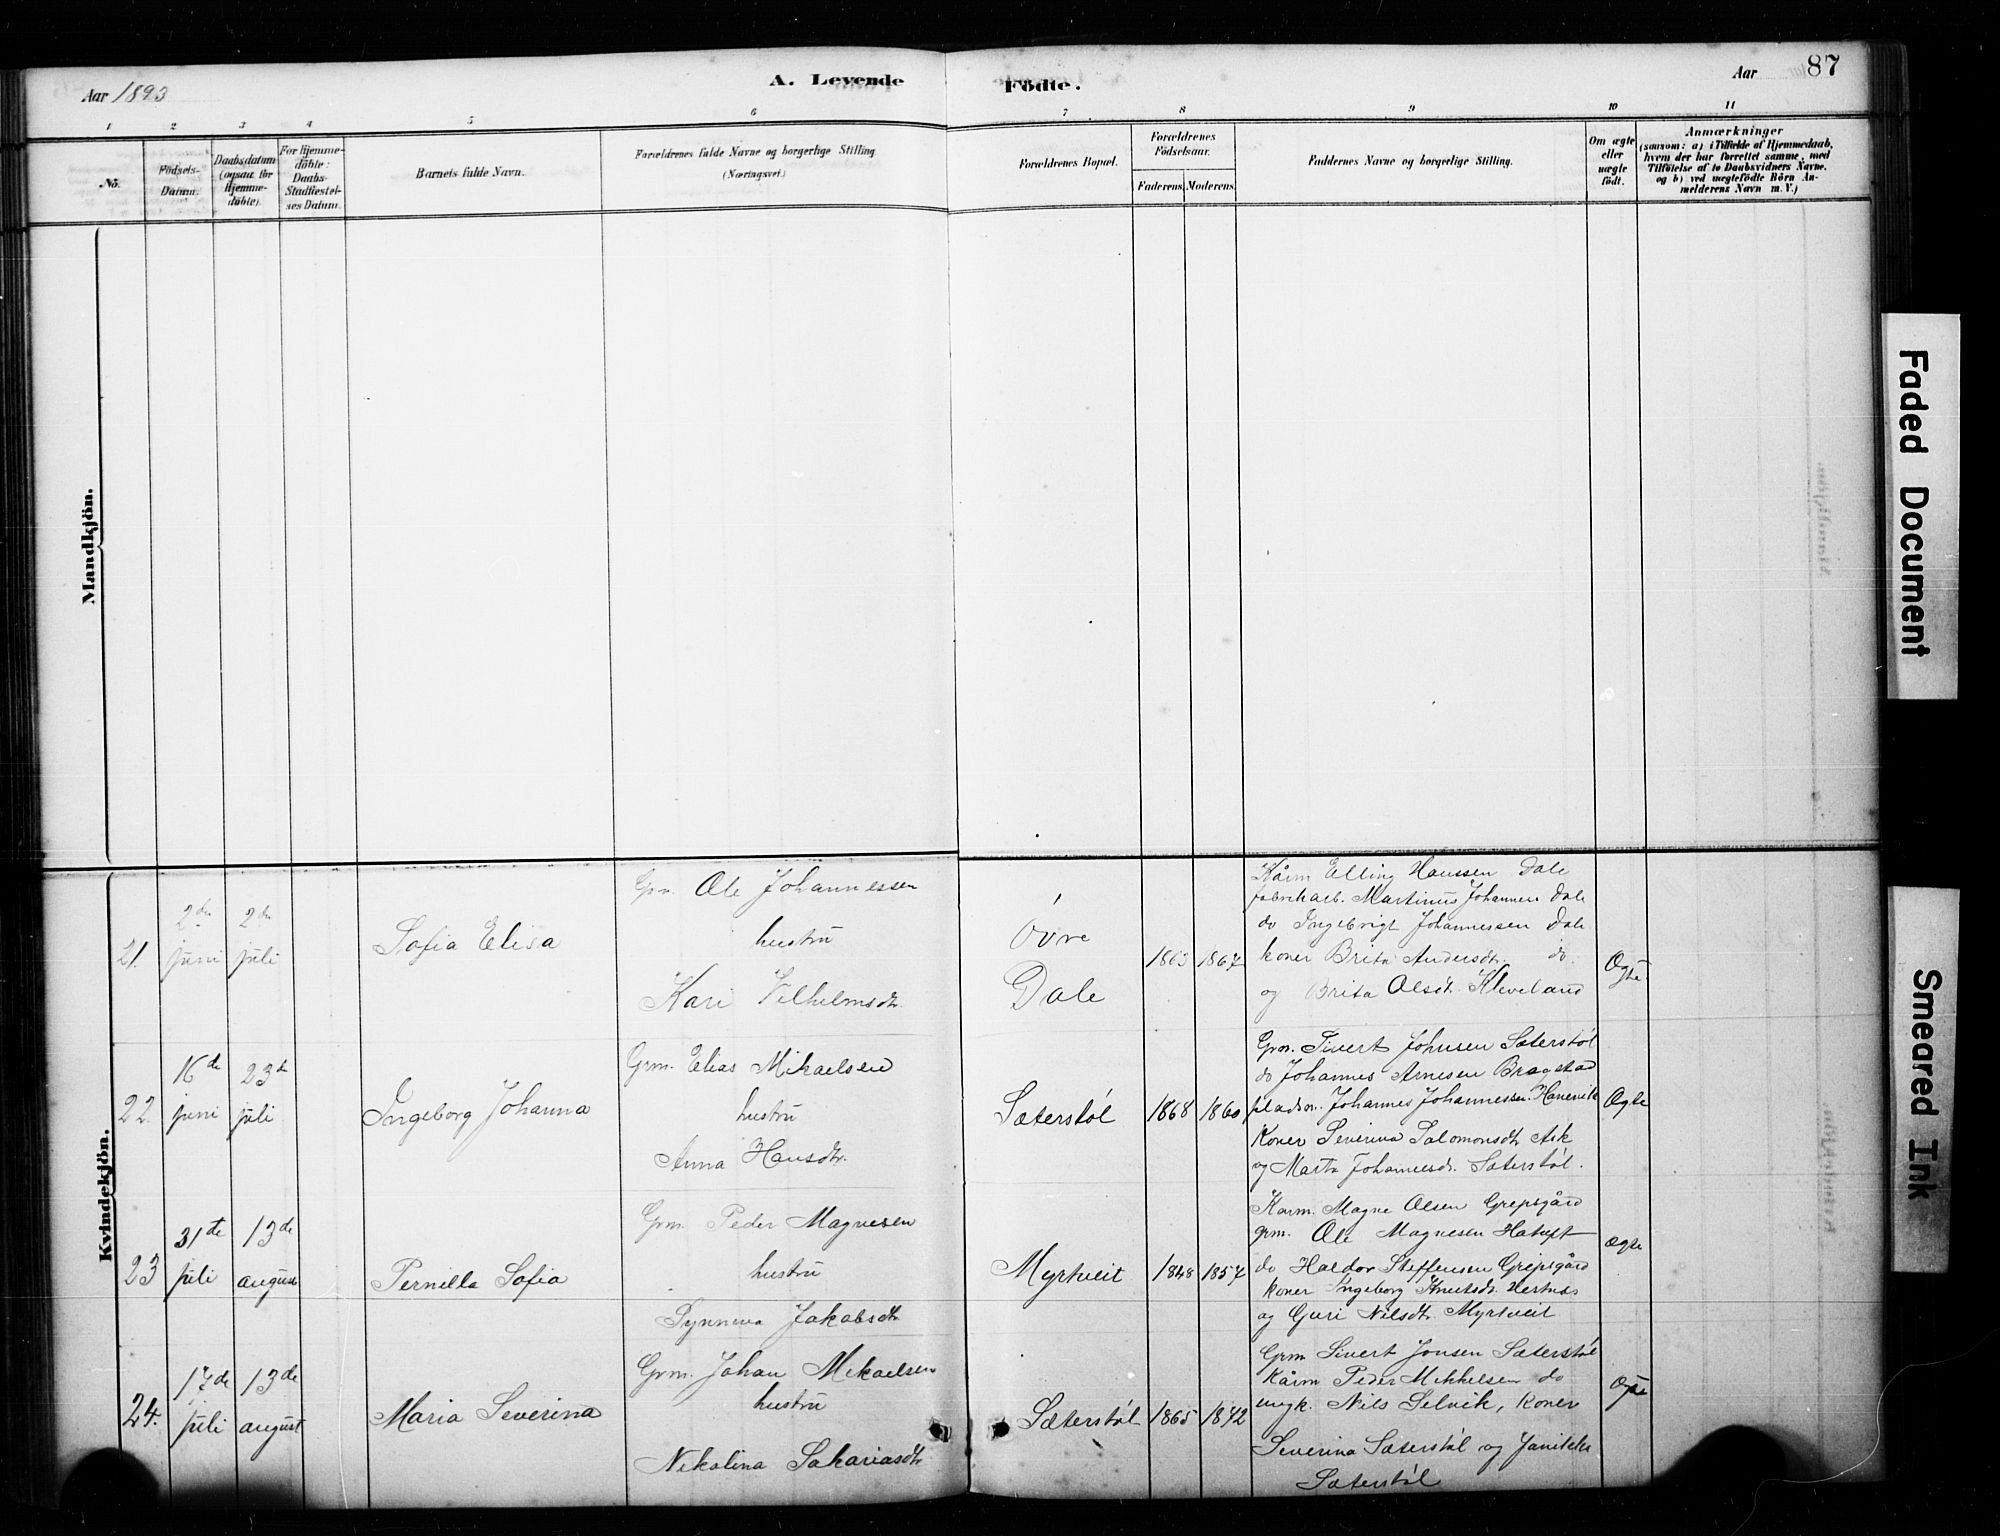 Aar 1893
A. Levende
Födte.
Aar
87
1 2 3 4 5 6 7 8 9 10 11
No.
Födsels-
Datum.
Daabsdatum
(ogsaa for
Hjemme-
döbte).
For Hjemme-
döbte:
Daabs-
Stadfæstel-
ses Datum.
Barnets fulde Navn.
Forældrenes fulde Navne og borgerlige Stilling.
(Næringsvei.)
Forældrenes Bopæl.
Forældrenes
Födselsaar.
Faderens. Moderens.
Faddernes Navne og borgerlige Stilling.
Om ægte
eller
uægte
födt.
Anmærkninger
(saasom: a) i Tilfælde af Hjemmedaab,
hvem der har forrettet samme, med
Tilföielse af to Daabsvidners Navne,
og b) ved uægtefödte Börn An-
melderens Navn m. V.)
Mandkjön.
Kvindekjön.
21.
2den
juni
2den
juli
Sofia Elisa
Grm. Ole Johannessen
hustru
Kari Vilhelmsdtr.
Övre
Dale
1863 1867
Kårm Elling Hanssen Dale
fabrikarb. Martinus Johannesen Dale
do Ingebrigt Johannessen Dale
koner Brita Andersdtr. do.
og Brita Olsdtr. Kleveland
Ægte
22.
16de
juni
23de
juli
Ingeborg Johanna
Grm. Elias Mikaelsen
hustru
Anna Hansdtr.
Sæterstöl
1868 1860
Grm. Sivert Johnsen Sæterstöl
do Johannes Arnesen Bragstad
pladsm. Johannes Johannessen Hanevik
Koner Severina Salomonsdtr Ask
og Marta Johannesdtr. Sæterstöl.
Ægte
23
31te
juli
13de
august
Pernilla Sofia
Grm. Peder Magnesen
hustru
Synneva Jakobsdtr
Myrtveit
1848 1857
Karm. Magne Olsen Grepsgård
grm. Ole Magnesen Hatuft
do Haldor Steffensen Grepsgård
koner Ingeborg Knutsdtr. Hertnæs
og Guri Nilsdtr. Myrtveit
ægte
24.
17de
juli
13de
august
Maria Severina
Grm. Johan Mikaelsen
hustru
Nikolina Sakariasdtr
Sæterstöl
1865 1872
Grm Sivert Jonsen Sæterstöl
Kårm Peder Mikkelsen do
ungk. Nils Selvik, Koner
Severina Sæterstöl og Janikke
Sæterstöl
Ægte
Faded Document
Smeared Ink